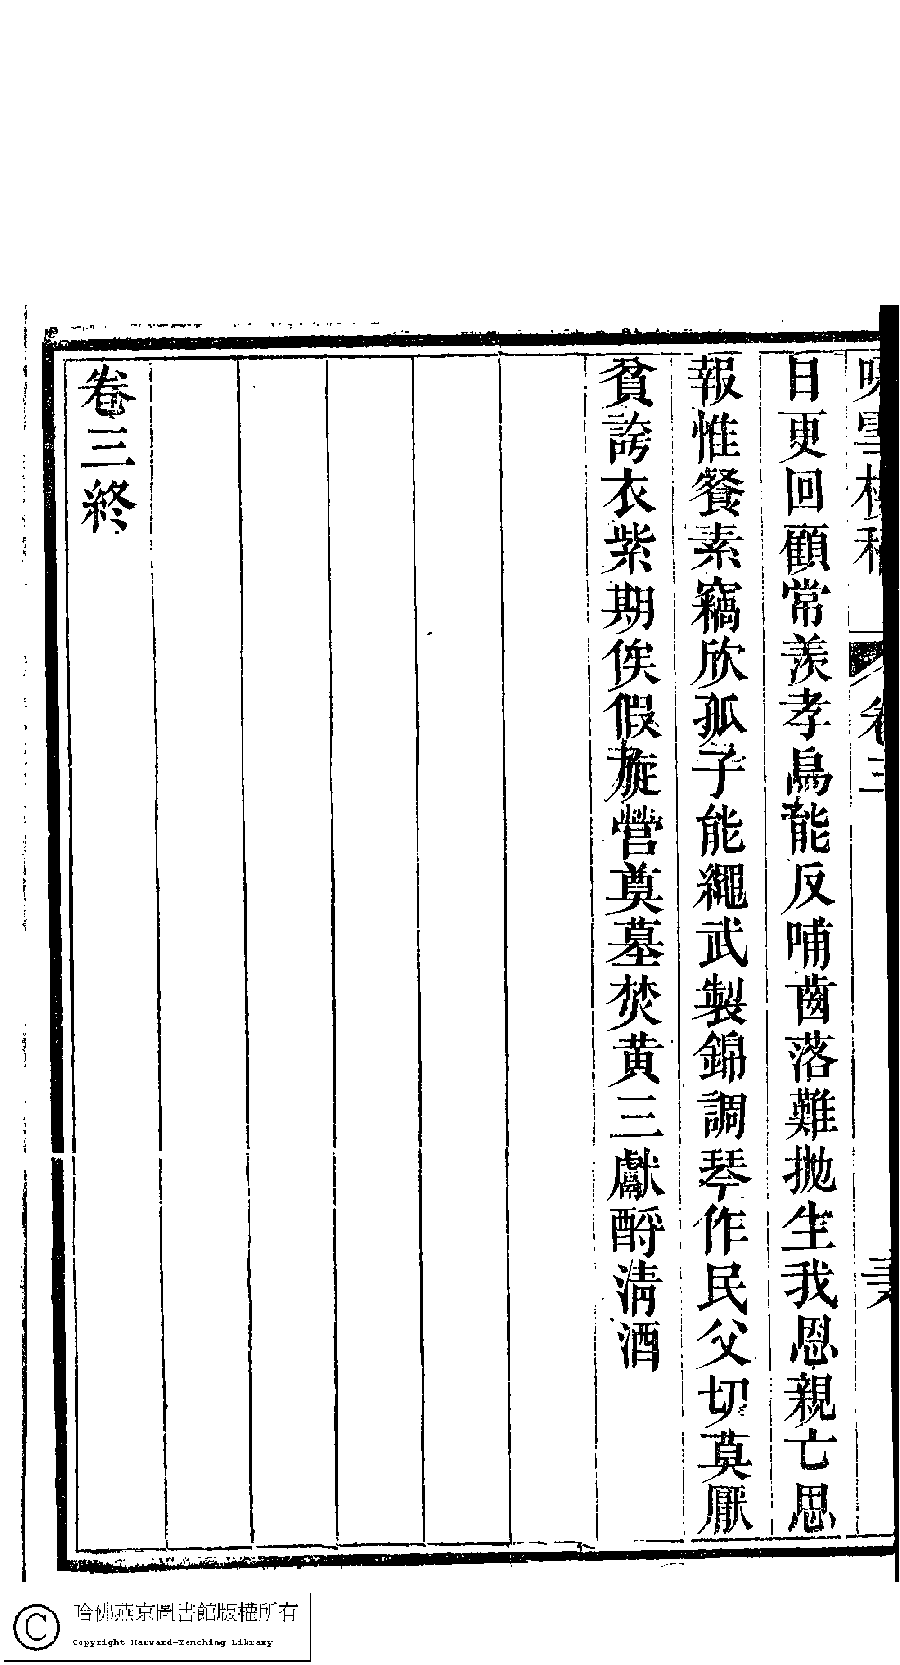 咏雪樓稿 卷三
日更回顧常羨孝烏能反哺齒落難拋生我恩親亡思
報惟餐素竊欣孤子能繩武製錦調琴作民父切莫厭
貧誇衣紫期俟假旋營奠墓焚黃三獻酹清酒
卷三終
哈佛燕京圖書館版權所有
Copyright Harvard-Yenching Library